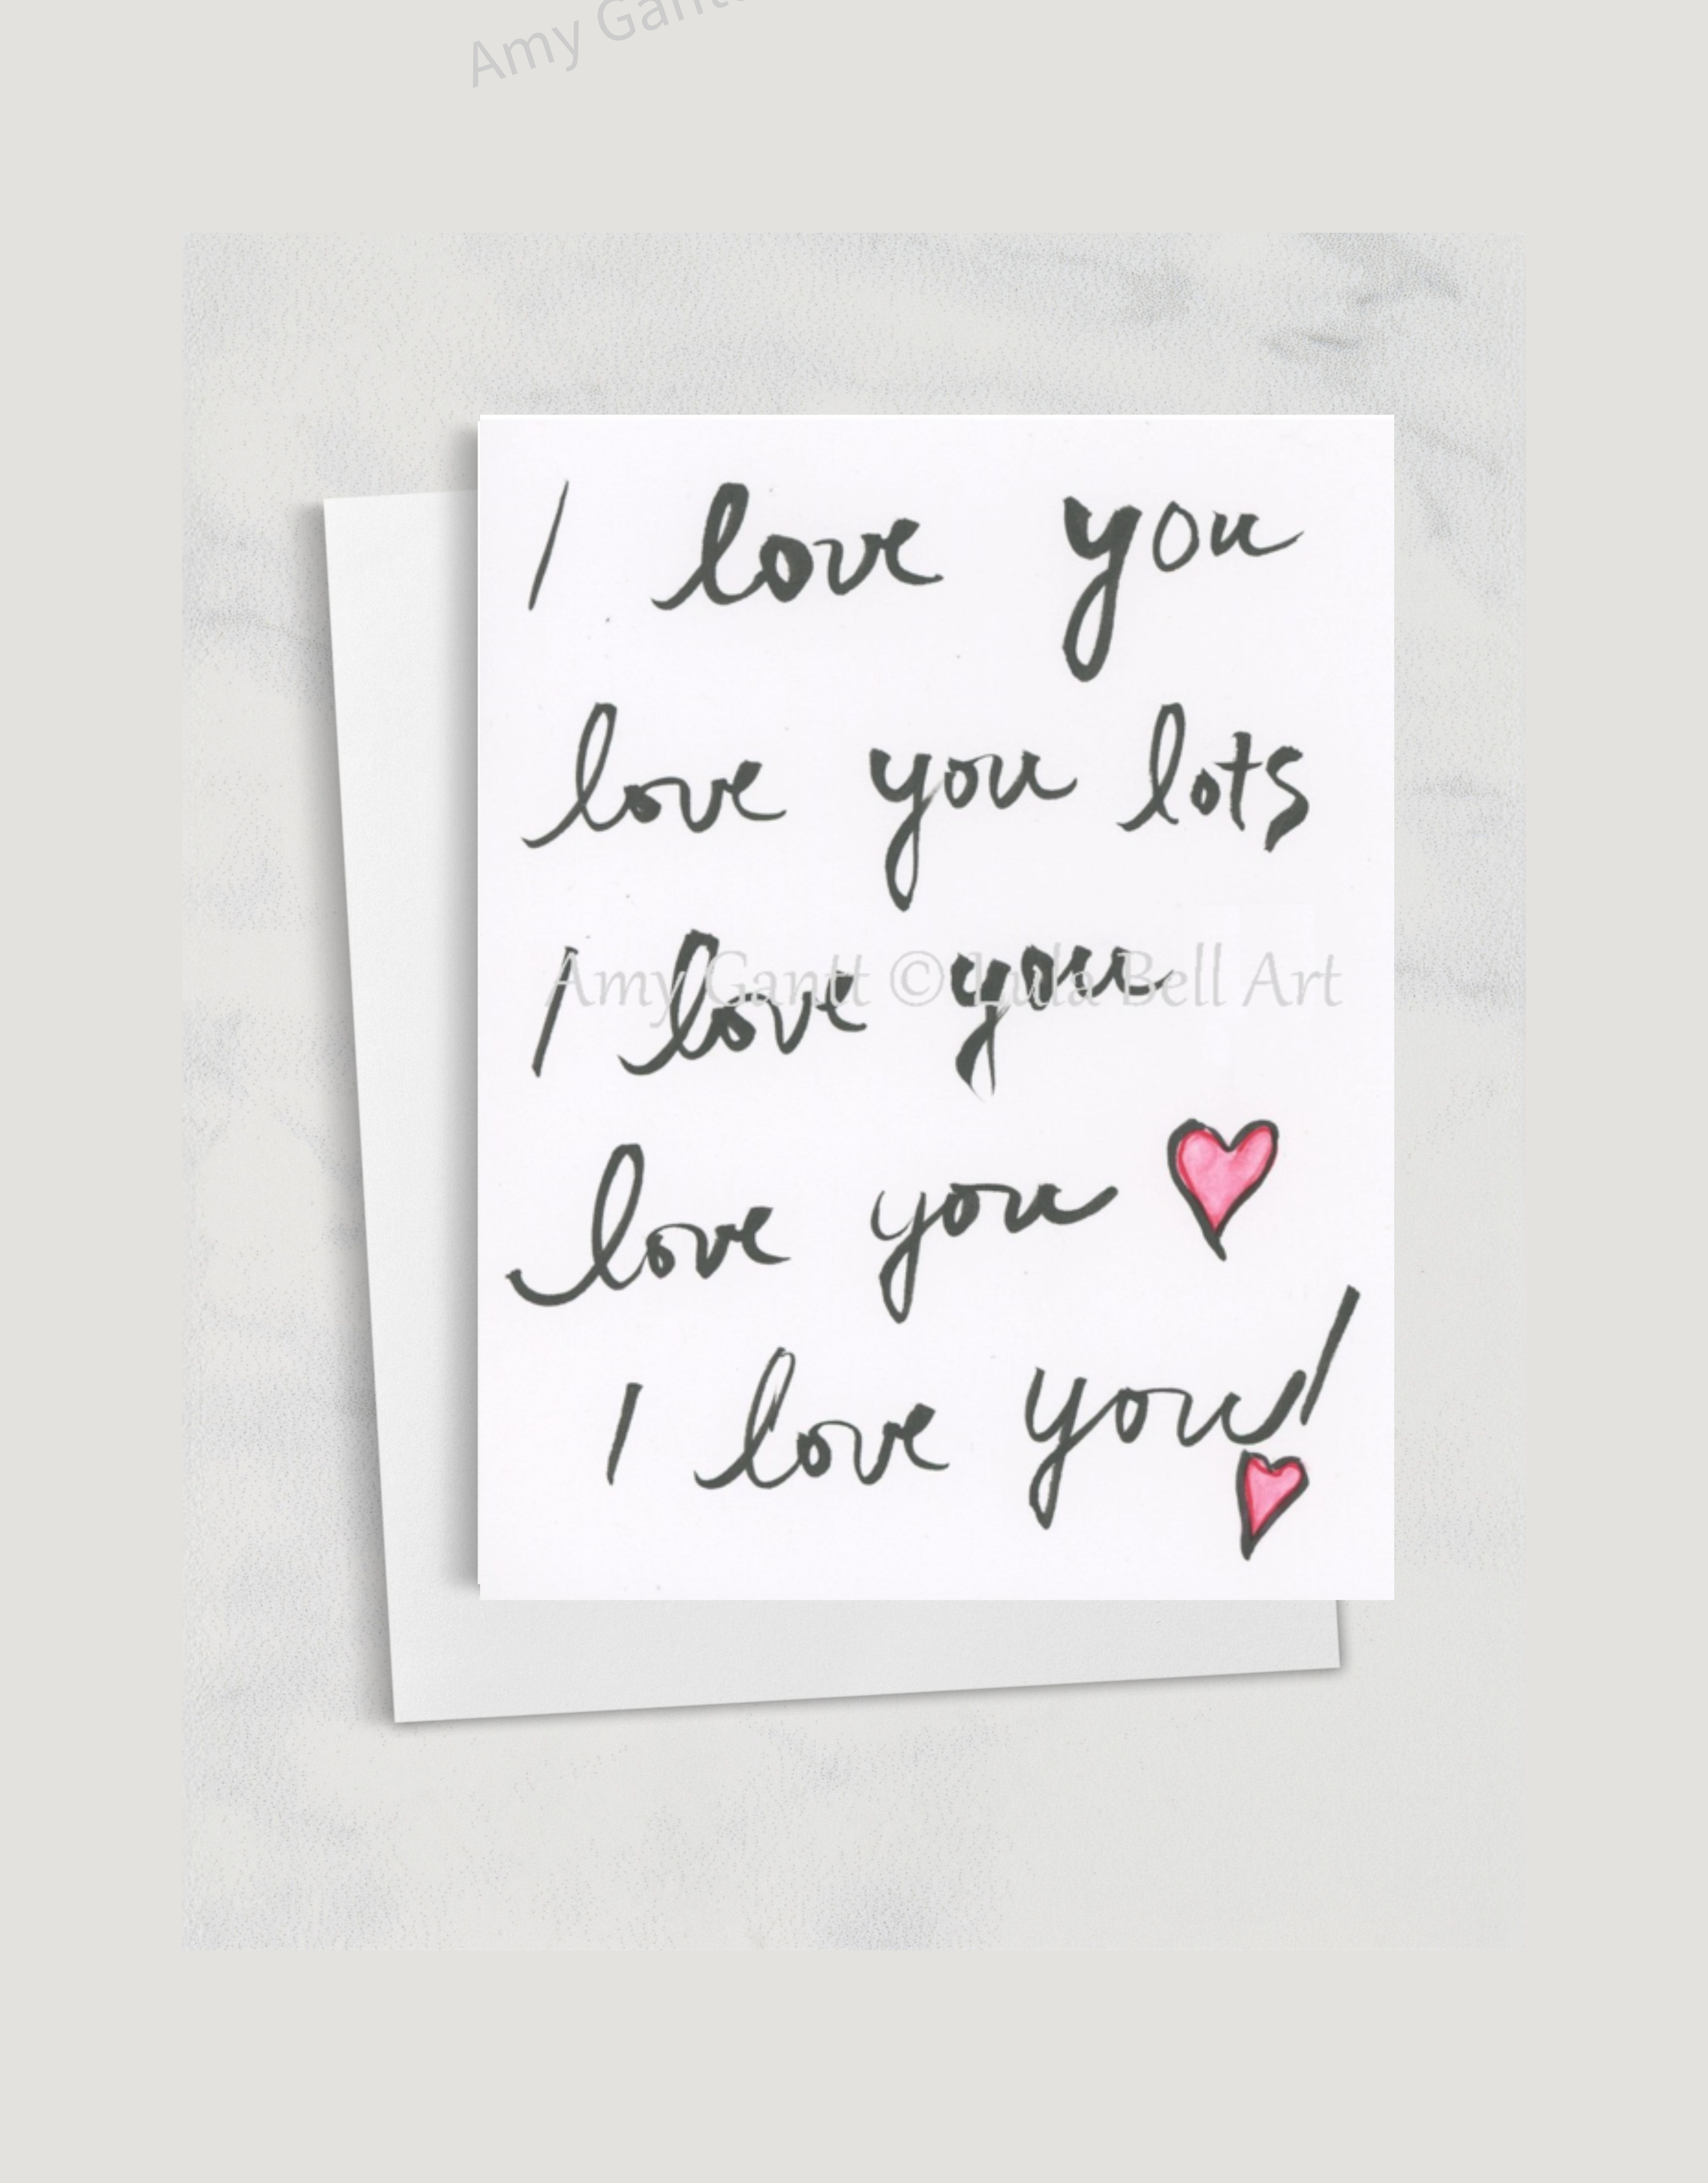 Amy Gantt
I love you
love you lots
I love you
Amy Gantt © Lula Bell Art
love you
I love you!